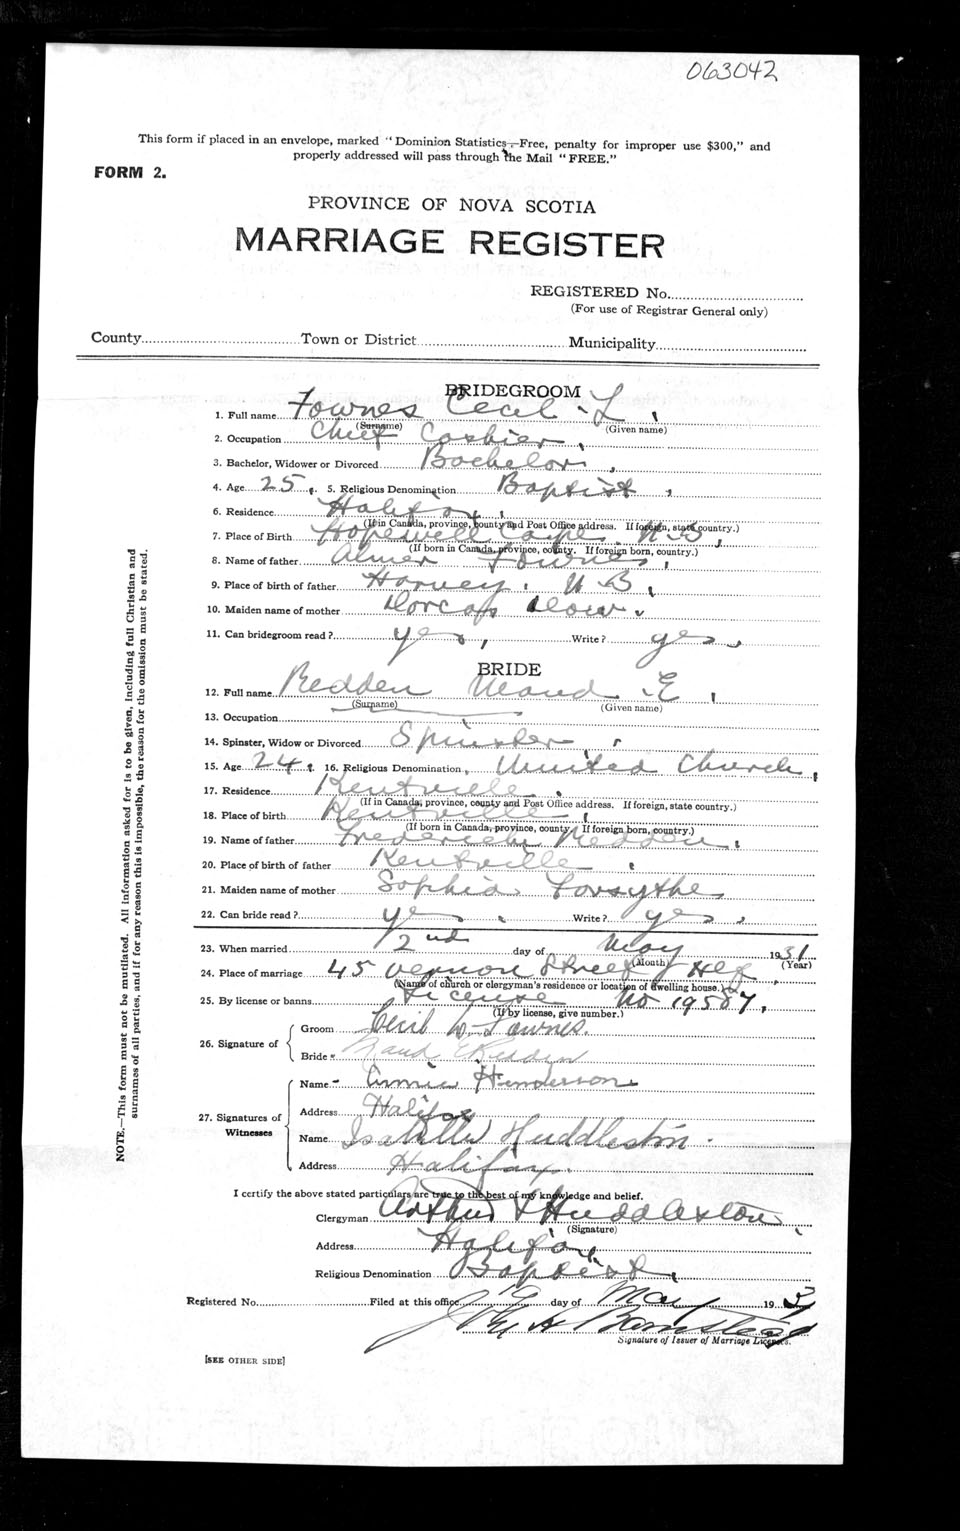 063042
This form if placed in an envelope, marked "Dominion Statistics—Free, penalty for improper use $300," and
properly addressed will pass through the Mail "FREE."
FORM 2.
PROVINCE OF NOVA SCOTIA
MARRIAGE REGISTER
REGISTERED No.
(For use of Registrar General only)
County Town or District Municipality
BRIDEGROOM
1. Full name Fownes Cecil L
(Surname) (Given name)
2. Occupation Chief Cashier
3. Bachelor, Widower or Divorced Bachelor
4. Age 25 5. Religious Denomination Baptist
6. Residence Halifax
(If in Canada, province, county and Post Office address. If foreign, state country.)
7. Place of Birth Hopewell Cape N.B.
(If born in Canada, province, county. If foreign born, country.)
8. Name of father Almer Fownes
9. Place of birth of father Harvey N B
10. Maiden name of mother Dorcas Dow
11. Can bridegroom read? yes, Write? yes
BRIDE
12. Full name Redden Maud E
(Surname) (Given name)
13. Occupation
14. Spinster, Widow or Divorced Spinster
15. Age 24 16. Religious Denomination, United Church,
17. Residence Kentville
(If in Canada, province, county and Post Office address. If foreign, state country.)
18. Place of birth Kentville
(If born in Canada, province, county. If foreign born, country.)
19. Name of father Frederick Redden
20. Place of birth of father Kentville
21. Maiden name of mother Sophia Forsythe
22. Can bride read? yes Write? yes
23. When married 2nd day of May 1931
(Month) (Year)
24. Place of marriage 45 Vernon Street Hfx
(Name of church or clergyman's residence or location of dwelling house.)
25. By license or banns License No 19587,
(If by license, give number.)
26. Signature of
Groom Cecil L. Fownes.
Bride Maud E Redden
27. Signatures of Witnesses
Name Annie Henderson
Address Halifax
Name Isabelle Huddleston.
Address Halifax.
I certify the above stated particulars are true to the best of my knowledge and belief.
Clergyman Arthur Huddleston
(Signature)
Address Halifax
Religious Denomination Baptist
Registered No. Filed at this office day of May 1931
Signature of Issuer of Marriage Licenses.
[SEE OTHER SIDE]
NOTE.—This form must not be mutilated. All information asked for is to be given, including full Christian and
surnames of all parties, and if for any reason this is impossible, the reason for the omission must be stated.